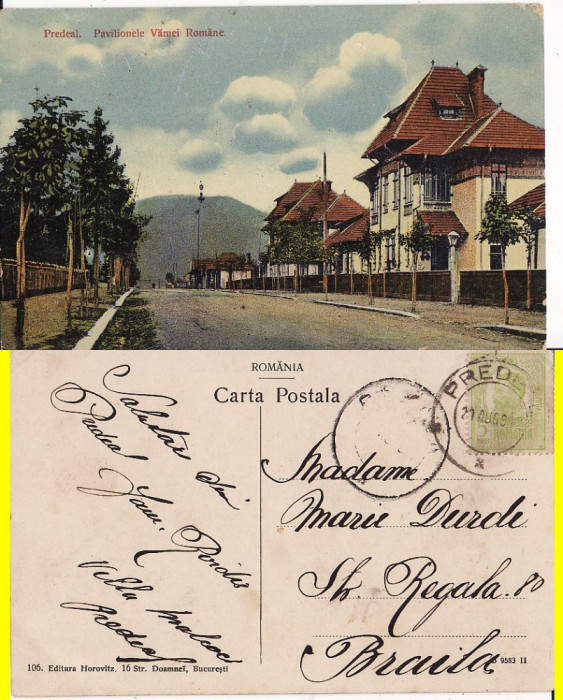 Predeal. Pavilionele Vămei Române.
ROMÂNIA
Carta Postala
PREDE
Salutări din
Predeal
Villa
Predeal
Madame
Marie Durdi
Str. Regala. 80
Braila
106. Editura Horovitz, 16 Str. Doamneĭ, Bucureşti
9583 II